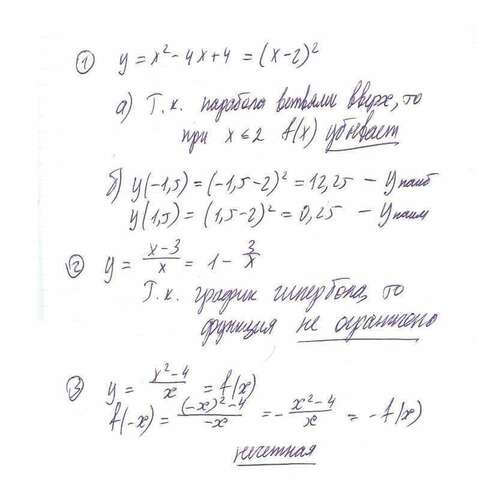 ① y = x² - 4x + 4 = (x - 2)²
а) Т.к. парабола ветвями вверх, то
при x ≤ 2 f(x) убывает
б) y(-1,5) = (-1,5 - 2)² = 12,25 - y наиб
y(1,5) = (1,5 - 2)² = 0,25 - y наим
② y = (x-3)/x = 1 - 3/x
Т.к. график гипербола, то
функция не ограничено
③ y = (x² - 4)/x = f(x)
f(-x) = ((-x)² - 4)/(-x) = - (x² - 4)/x = -f(x)
нечетная